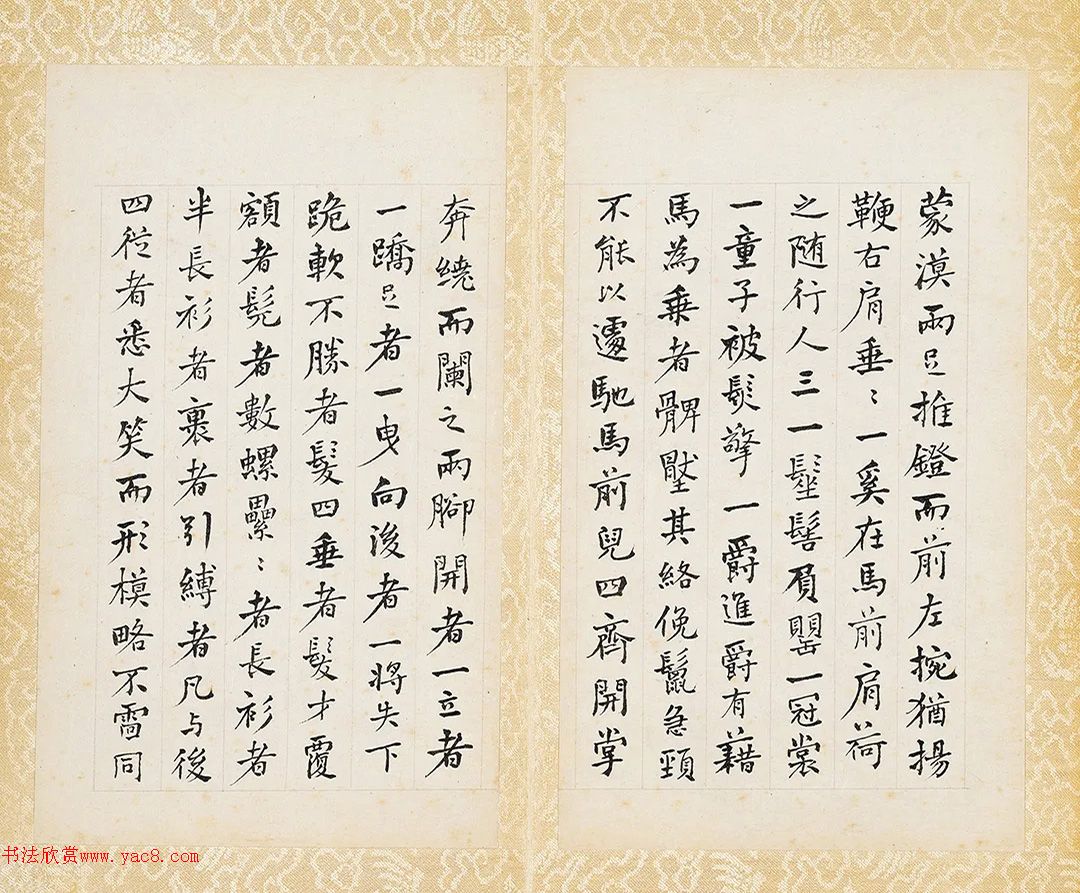 蒙漠兩足推鐙而前左捥猶揚
鞭右肩垂〻一奚在馬前肩荷
之随行人三一髽髻負罌一冠裳
一童子被髮擎一爵進爵有藉
馬為乗者髀壓其絡俛鬣急頸
不能以遽馳馬前兒四齊開掌
奔繞而闌之兩腳開者一立者
一蹻足者一曳向後者一將失下
跪軟不勝者髮四垂者髮才覆
額者髡者數螺纍〻者長衫者
半長衫者裹者引縛者凡与後
四從者悉大笑而形模略不雷同
书法欣赏www.yac8.com